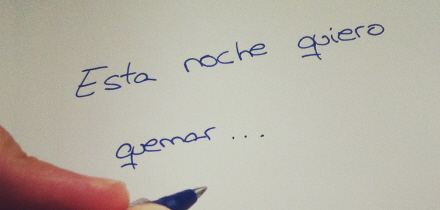 Esta noche quiero
quemar...